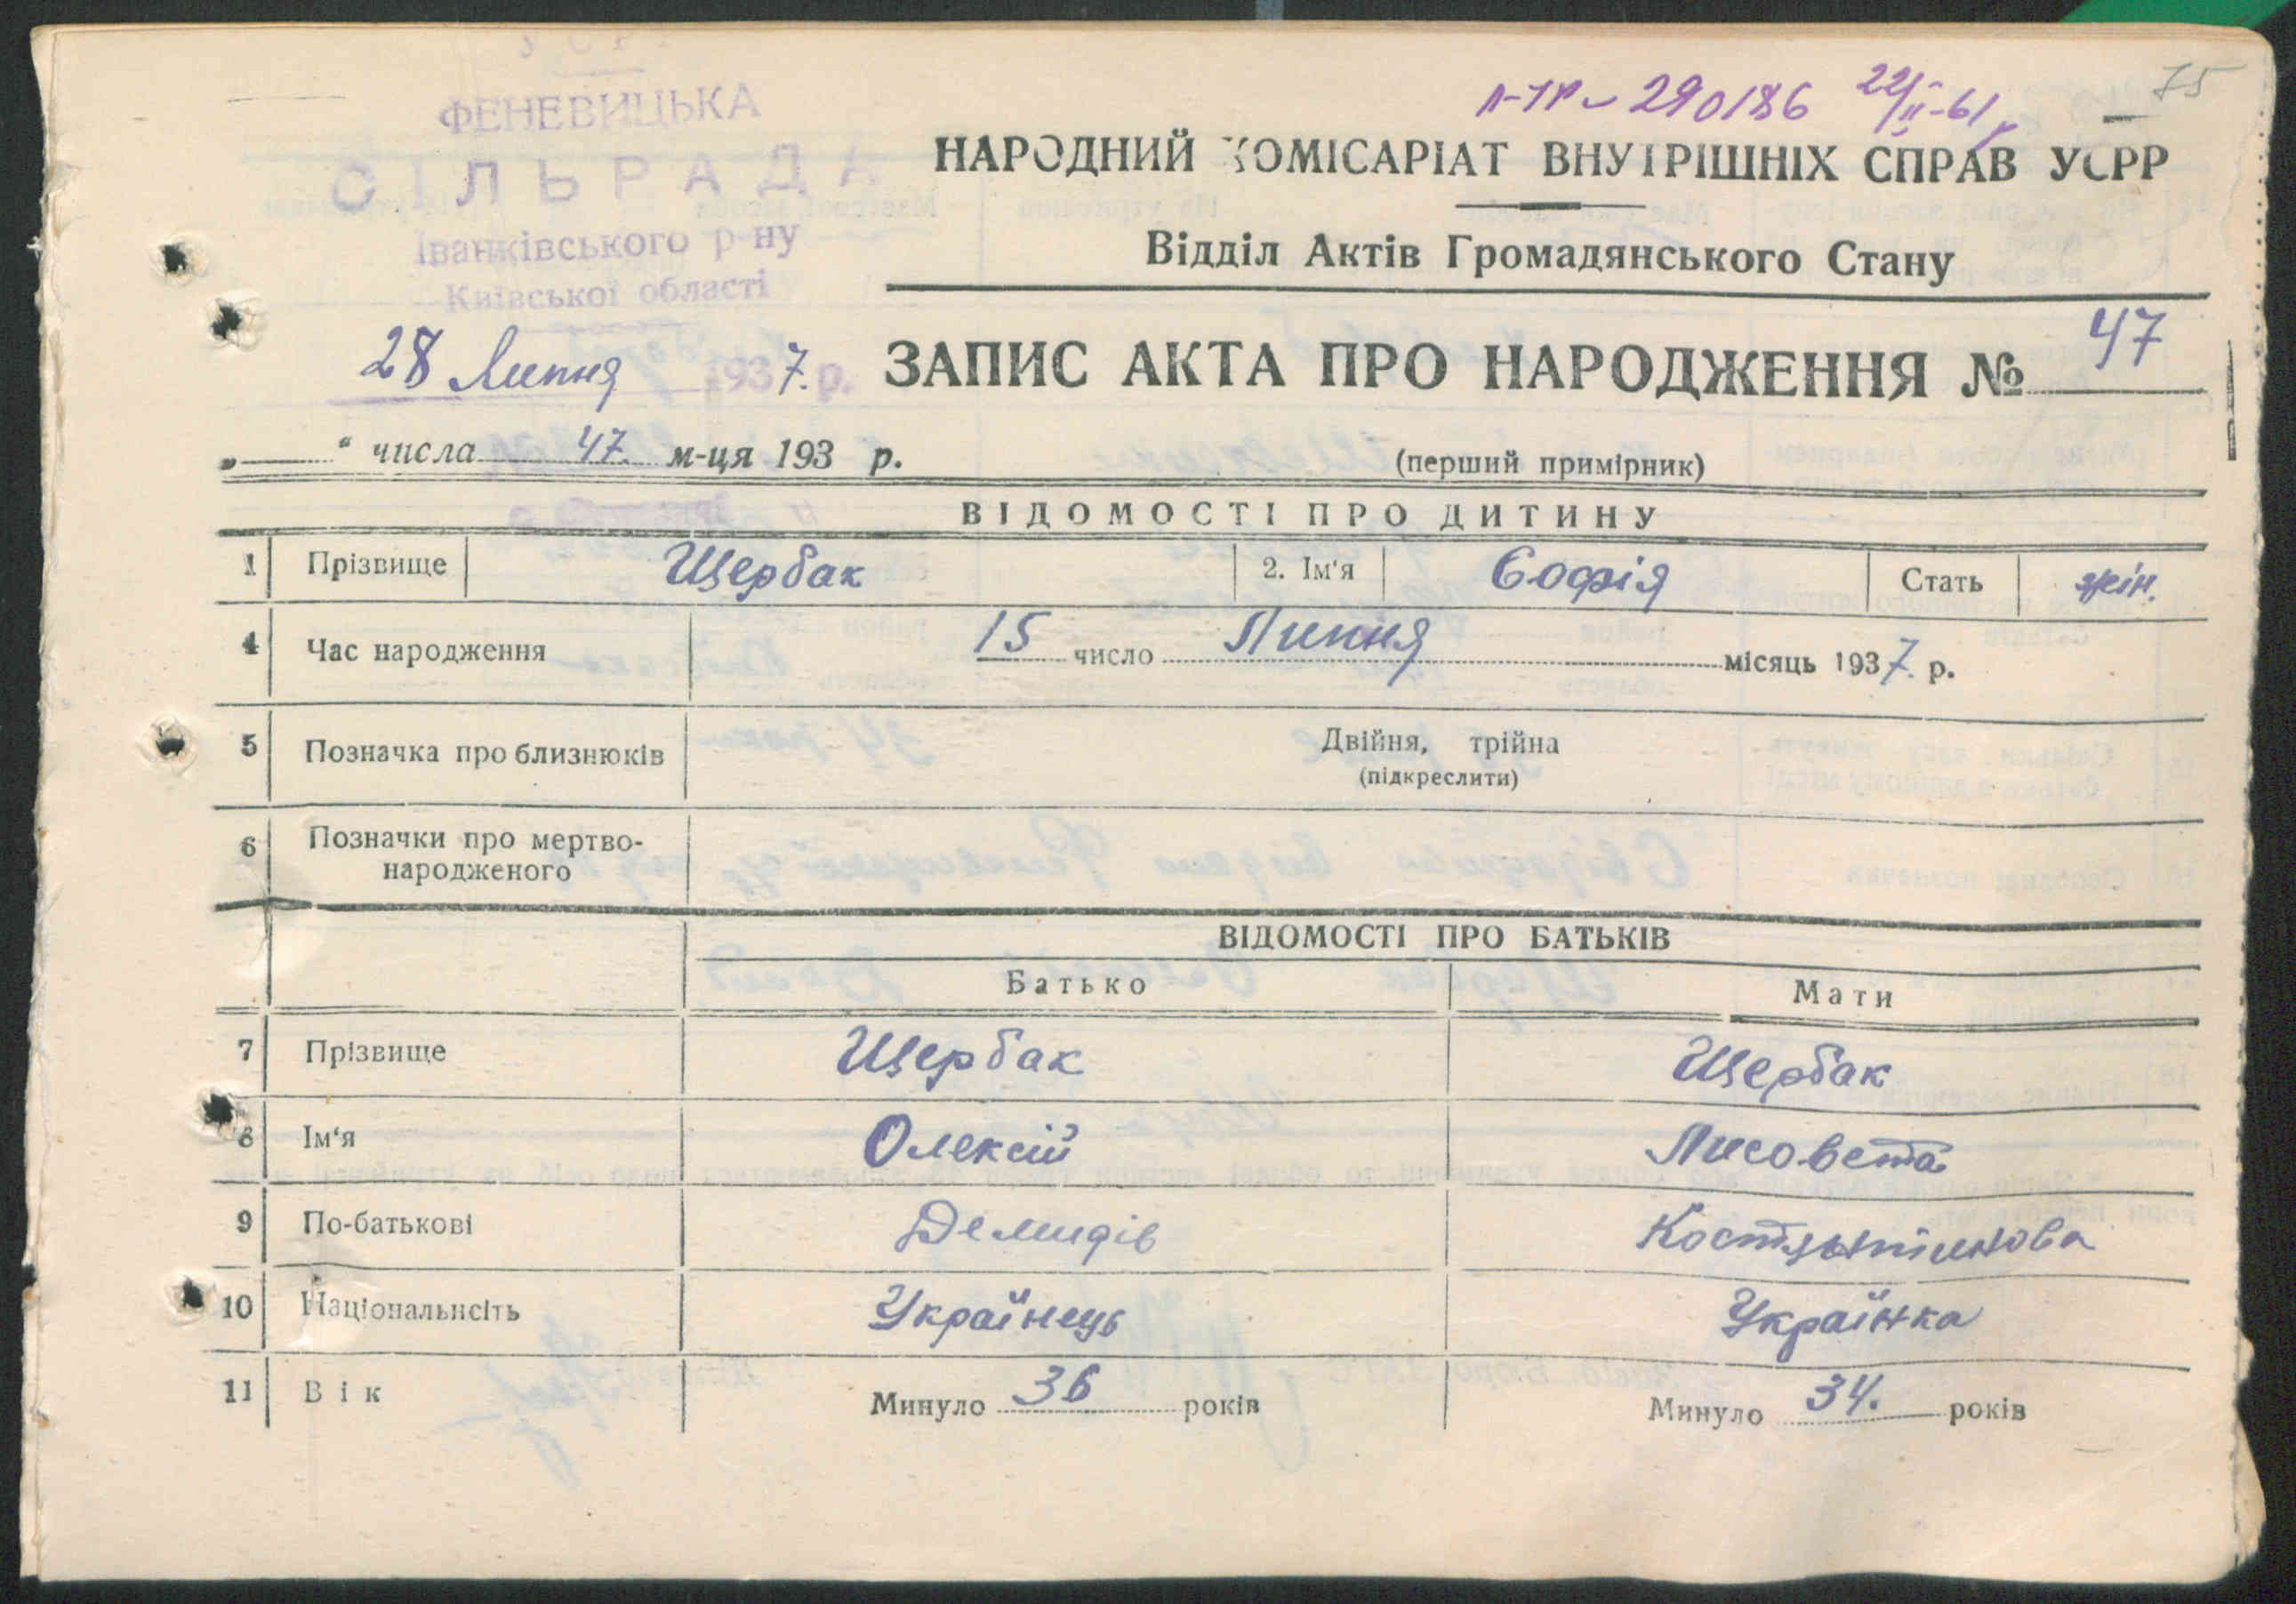 УСРР
ФЕНЕВИЦЬКА
СІЛЬРАДА
Іванківського р-ну
Київської області
28 Липня 1937 р.
290186 22/II-61 75
НАРОДНИЙ КОМІСАРІАТ ВНУТРІШНІХ СПРАВ УСРР
Відділ Актів Громадянського Стану
ЗАПИС АКТА ПРО НАРОДЖЕННЯ № 47
„ “ числа 47. м-ця 193 р.
(перший примірник)
ВІДОМОСТІ ПРО ДИТИНУ
1 Прізвище Щербак 2. Ім'я Софія Стать жін.
4 Час народження 15 число Липня місяць 1937. р.
5 Позначка про близнюків Двійня, трійна
(підкреслити)
6 Позначки про мертво-
народженого
ВІДОМОСТІ ПРО БАТЬКІВ
Батько Мати
7 Прізвище Щербак Щербак
8 Ім'я Олексій Лисовета
9 По-батькові Демидів Костянтинова
10 Національнсіть Українець Українка
11 Вік Минуло 36 років Минуло 34. років